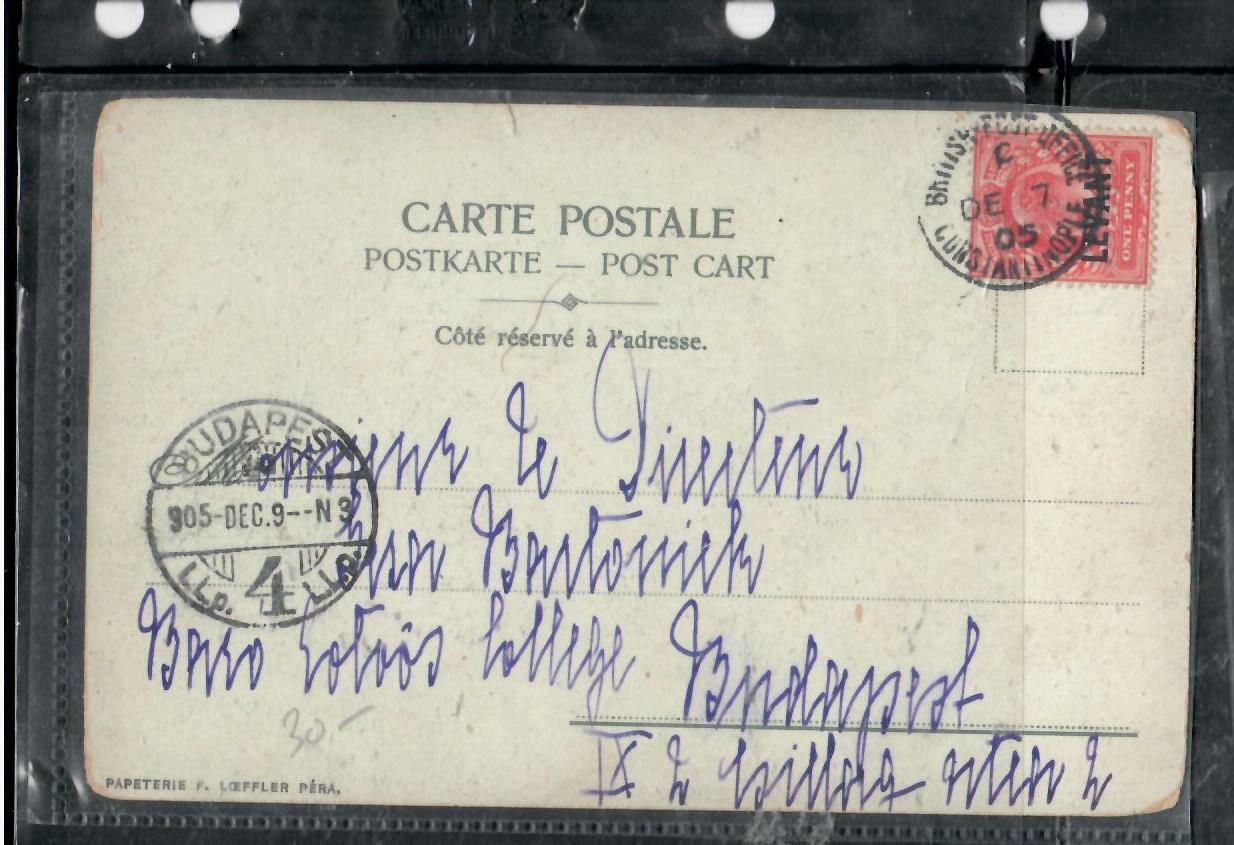 CARTE POSTALE
POSTKARTE — POST CART
Côté réservé à l'adresse.
BRITISH POST OFFICE
C
DE 7
05
CONSTANTINOPLE
LEVANT
ONE PENNY
BUDAPEST
905-DEC.9--N3
4
Directeur
Bartoniek
Baro College Budapest
IX Csillag utca 2
30-
PAPETERIE F. LŒFFLER PÉRA.